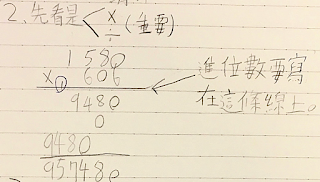 2、先看是<×÷(重要)
1580
×①606
進位數要寫
在這條線上。
9480
0
9480
957480